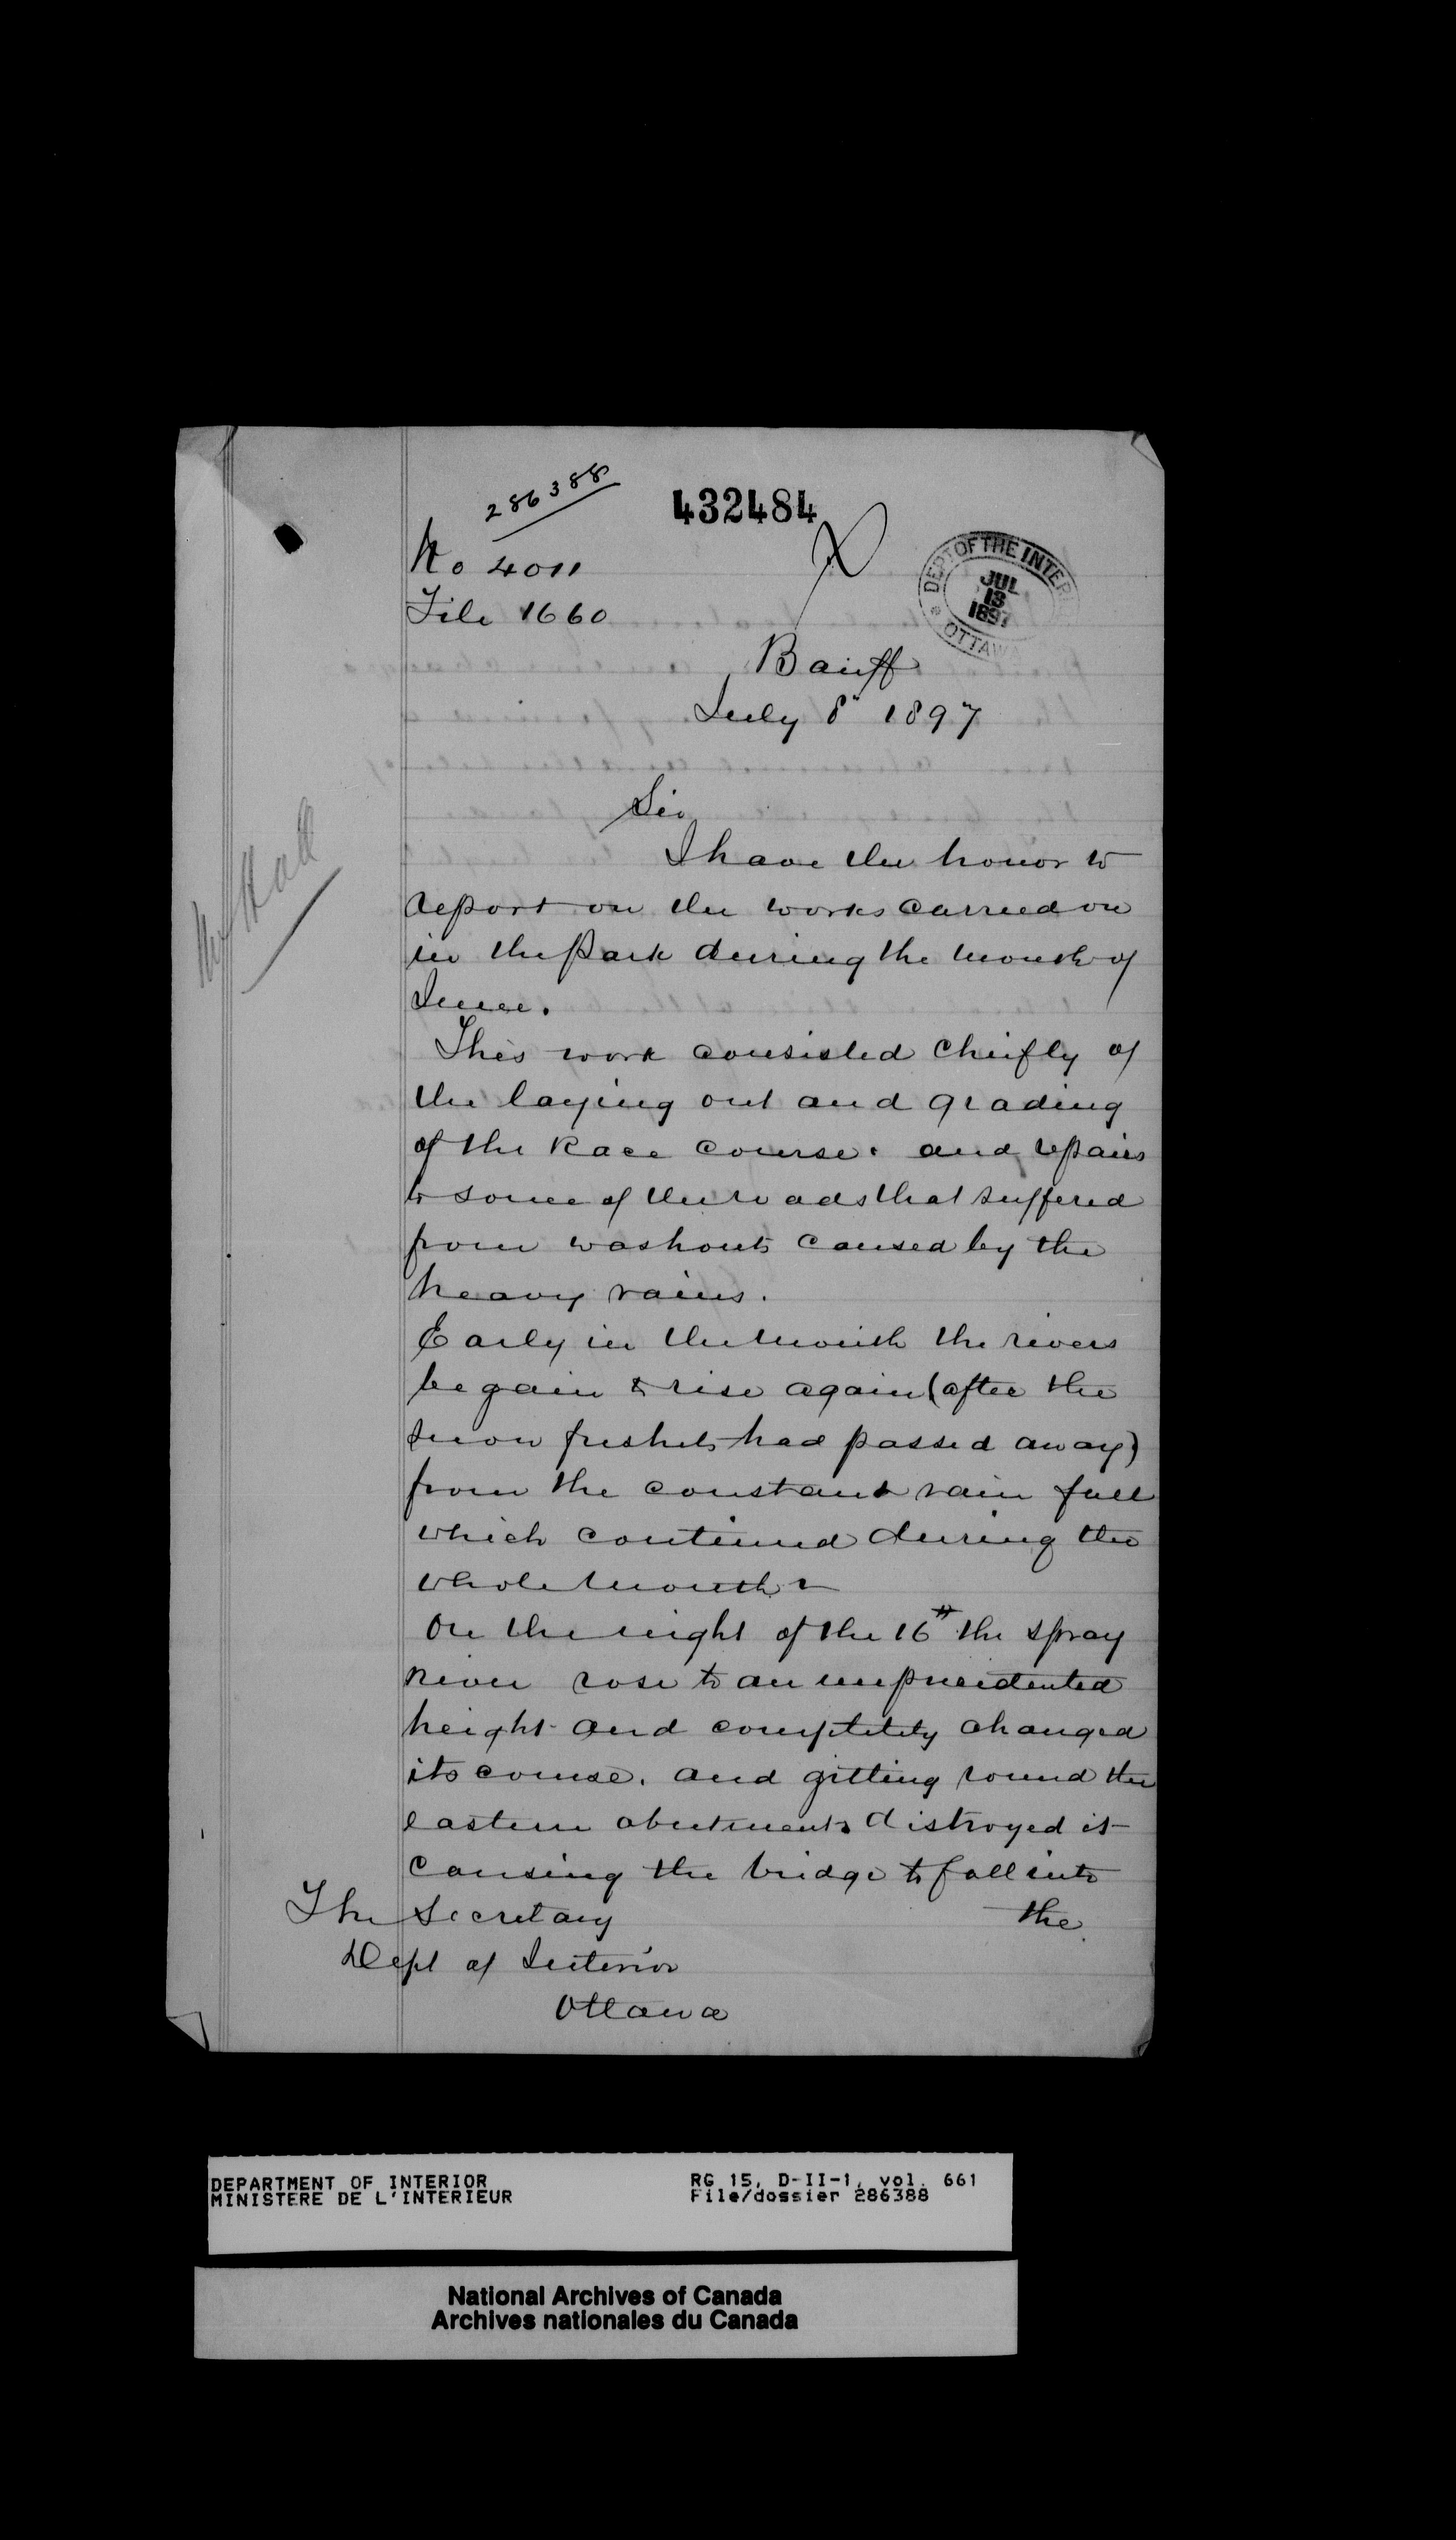 286388
432484
No 4011
File 1660
DEPT OF THE INTER
JUL
13
1897
OTTAWA
Banff
July 8" 1897
Mr Hall
Sir
I have the honor to
report on the works carried on
in the Park during the month of
June.
This work consisted cheifly of
the laying out and grading
of the Race course. and repairs
to some of the roads that suffered
from washouts caused by the
heavy rains.
Early in the month the rivers
begain to rise again (after the
snow freshets had passed away)
from the constant rain fall
which continued during the
whole month
On the night of the 16th the Spray
River rose to an unpreceidented
height and completely changed
its course. and gitting round the
eastern abutments distroyed it
causing the bridge to fall into
the
The Secretary
Dept of Interior
Ottawa
DEPARTMENT OF INTERIOR
MINISTERE DE L'INTERIEUR
RG 15, D-II-1, vol. 661
File/dossier 286388
National Archives of Canada
Archives nationales du Canada